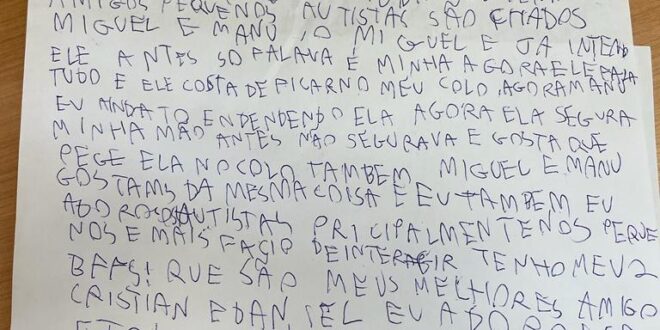 AMIGOS PEQUENOS AUTISTAS SÃO CHADOS
MIGUEL E MANU, O MIGUEL E JA INTEND
ELE ANTES SO FALAVA É MINHA AGORA ELE FALA
TUDO E ELE COSTA DE PICAR NO MEU COLO. AGORA MANU
EU AINDA TO ENDENDENDO ELA AGORA ELA SEGURA
MINHA MÃO ANTES NÃO SEGURAVA E GOSTA QUE
PEGE ELA NO COLO TAMBEM MIGUEL E MANU
GOSTAMS DA MESMA COISA E EU TAMBEM EU
ADORO AUTISTAS PRICIPALMENTE NOS PEQUE
NOS E MAIS FACIO DE INTERAGIR TENHO MEUS 2
BFFS! QUE SÃO MEUS MELHORES AMIGO
CRISTIAN E DANIEL EU ADORO